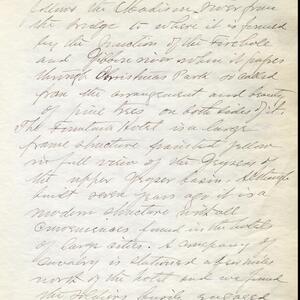 the Madison River from
the bridge to where it is formed
by the junction of the Firehole
and Gibbon river when it passes
through Christmas Park so called
from the arrangement and beauty
of pine trees on both sides of it.
The Fountain Hotel is a large
frame structure painted yellow
in full view of the Geysers of
the upper geyser basin. Although
built seven years ago it is a
modern structure with all
conveniences found in the hotels
of large cities. A company of
Cavalry is stationed a few miles
north of the hotel and we found
the soldiers quite